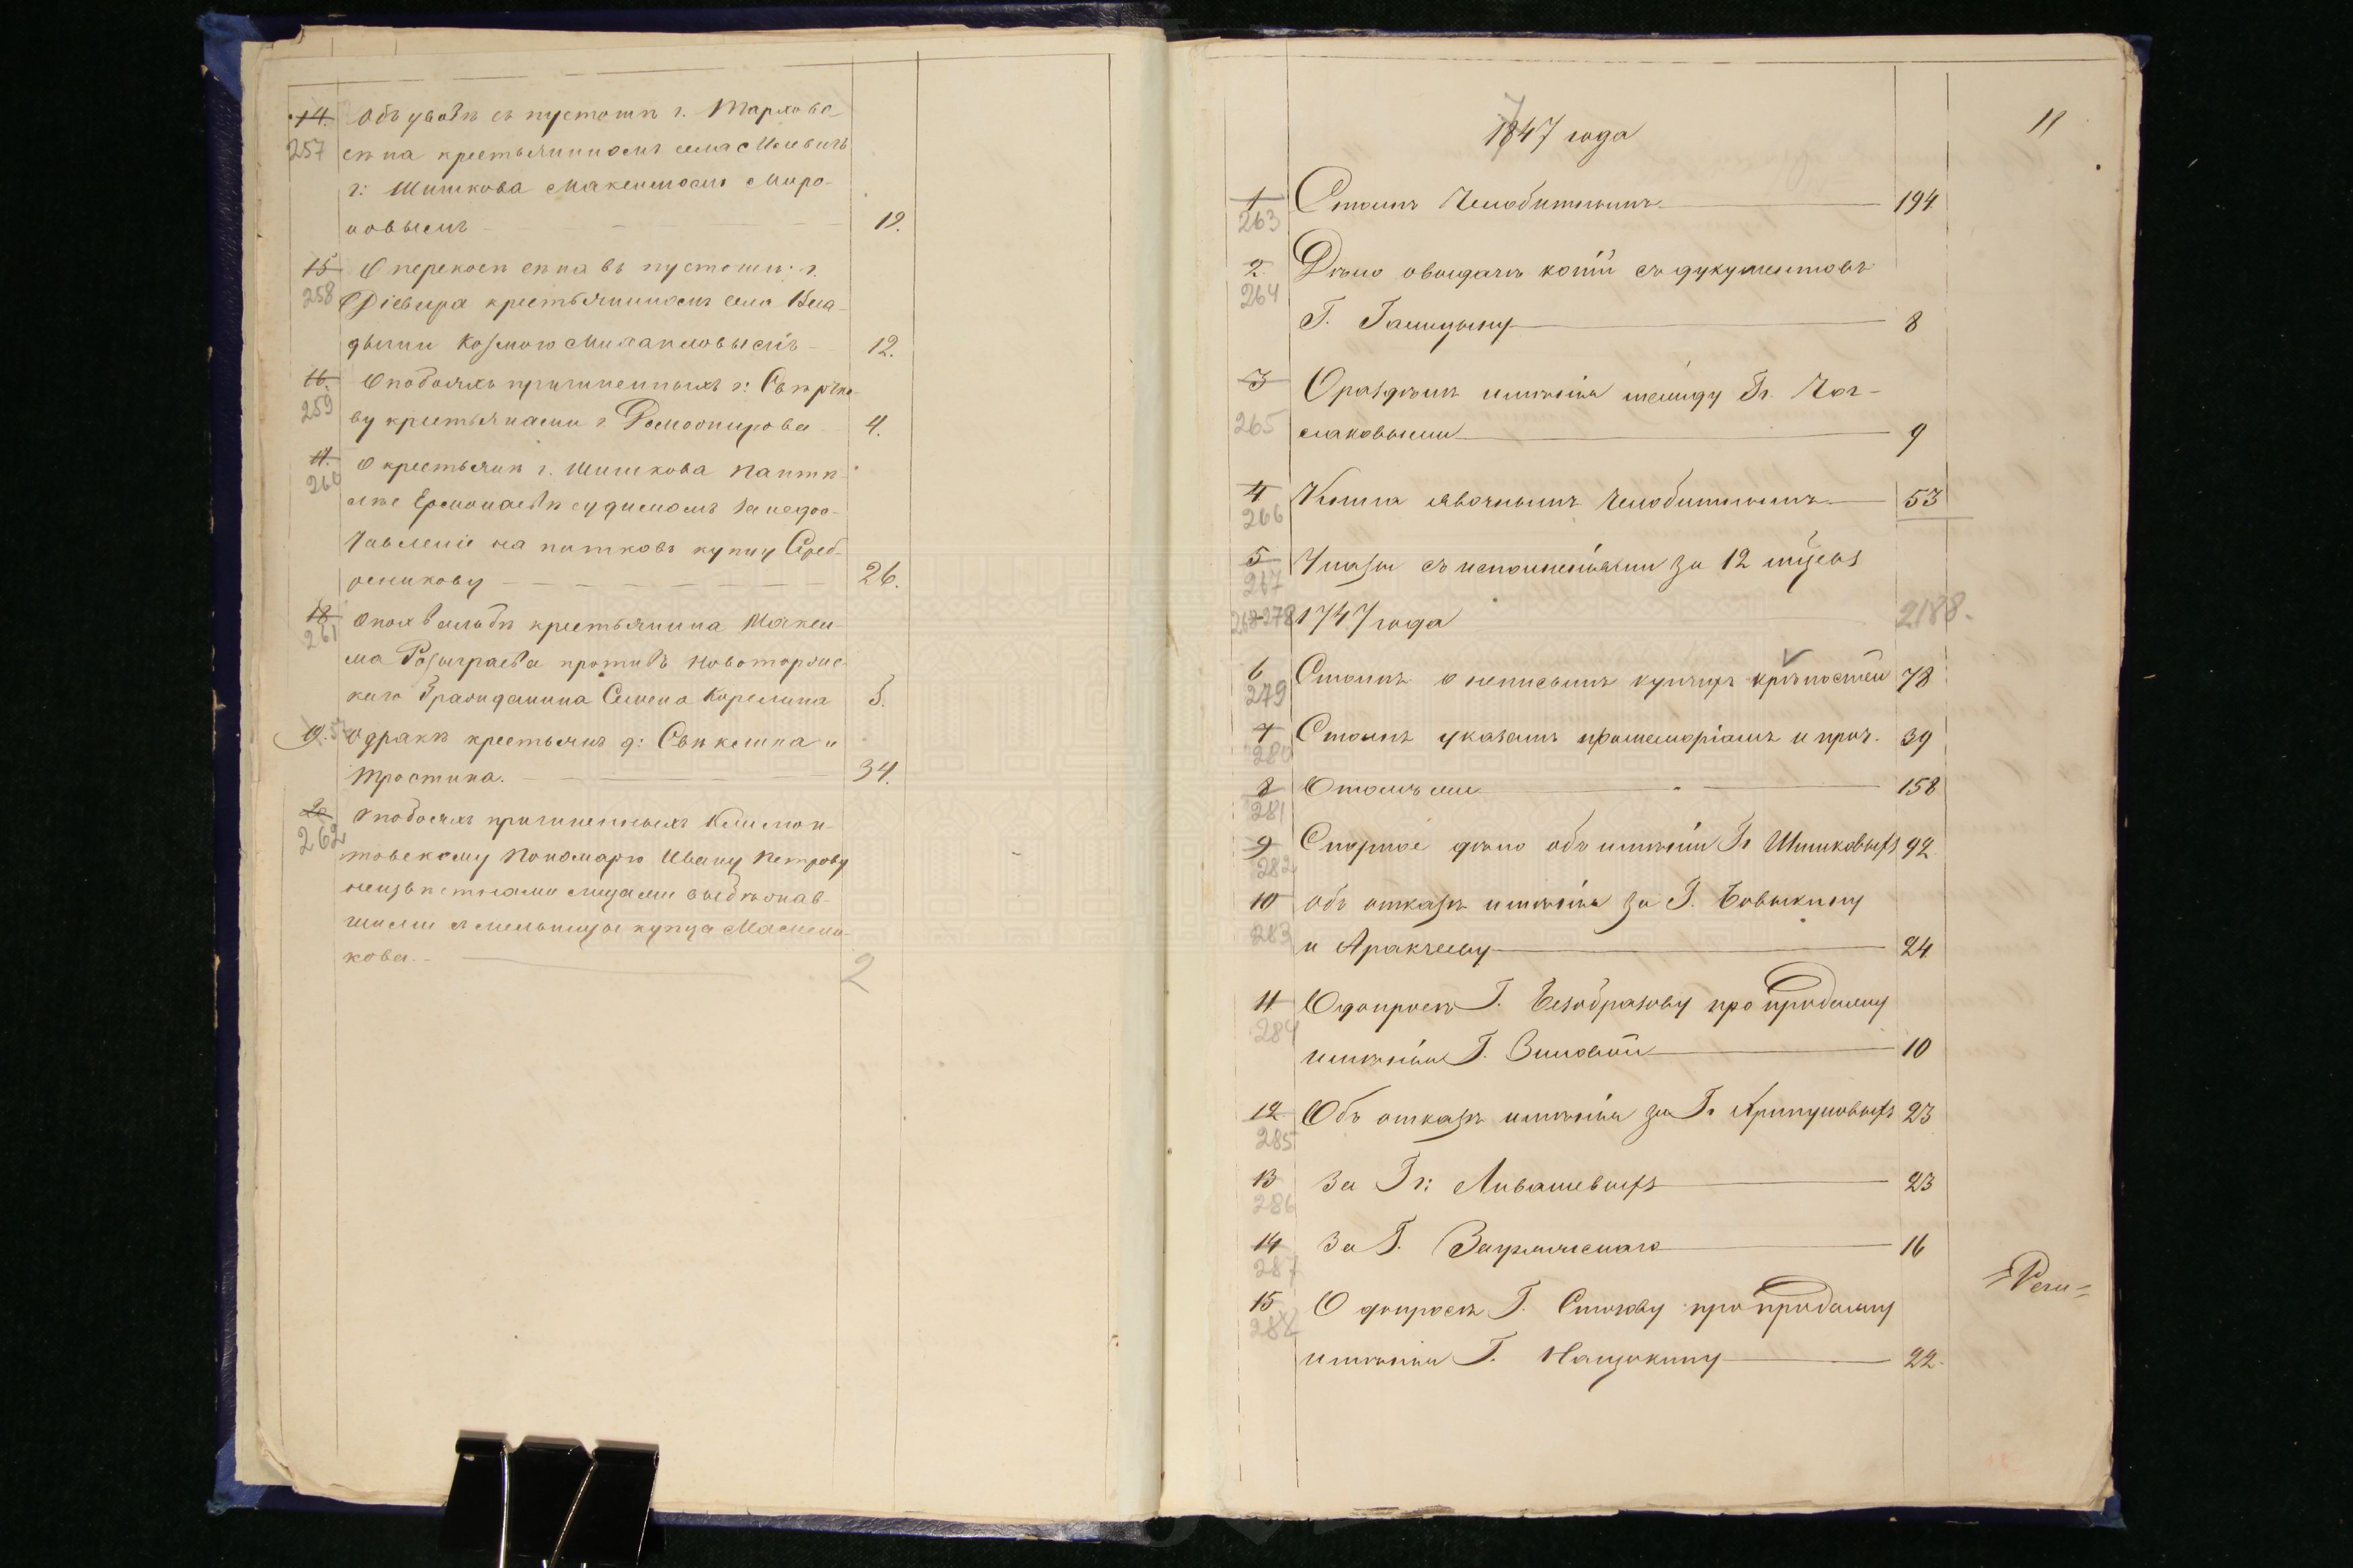 14. Объ увозѣ съ пустоши г. Тархова
257 сѣна крестьяниномъ села Млевичъ
г: Шишкова Максимомъ Миро-
новымъ 12.
15 О перекосѣ сѣна въ пустоши г.
258 Дiевыра крестьяниномъ села Вла-
дычни Козмою Михаиловымъ 12.
16. О побояхъ причиненныхъ г: Свѣчко-
259 ву крестьянами г. Домооширова 4.
17. О крестьянѣ г. Шишкова Пантѣ-
260 лѣе Ермолаевѣ судимомъ за недос-
тавленiе на патковъ купцу Сереб-
реникову 26.
18 О похвальбѣ крестьянина Макси-
261 ма Розыграева противъ Новоторжс-
каго Гражданина Семена Корелина 5.
19. О дракѣ крестьянъ д: Свѣклина и
Тростина. 34.
20 О побояхъ причиненныхъ Климон-
262 товскому Пономарю Ивану Петрову
неизвѣстными лицами выбѣжав-
шими с мельницы купца Маслени-
кова. 2
11
1747 года
1 Столпъ Челобитнымъ 194
263
2 Дѣло о выдачѣ копiи съ дукументовъ
264
Г. Галицыну 8
3 О раздѣлѣ имѣнiя между Гг. Чог-
265 лаковыми 9
4 Книга явочнымъ челобитнымъ 53
266
5 Указы съ исполненiями за 12 мѣсяцъ
267
268-278 1747 года 2188.
6 Столпъ о неписьмѣ купчихъ крѣпостей 78
279
7 Столпъ указамъ промеморiамъ и проч. 39
280
8 Столпъ 158
281
9 Спорное дѣло объ имѣнiи Гг Шишковыхъ 92
282
10 объ отказѣ имѣнiя за Г. Бовыкину
283 и Аракчееву 24
11 О допросѣ Г. Безобразову про продажу
284
имѣнiя Г. Зиловой 10
12 Объ отказѣ имѣнiя за Гг Хрипуновыхъ 23
285
13 за Гг: Ливашевыхъ 23
286
14 за Г. Загряжскаго 16
287
15 О допросѣ Г. Стогову про продажу
288
имѣнiя Г. Нащокину 22